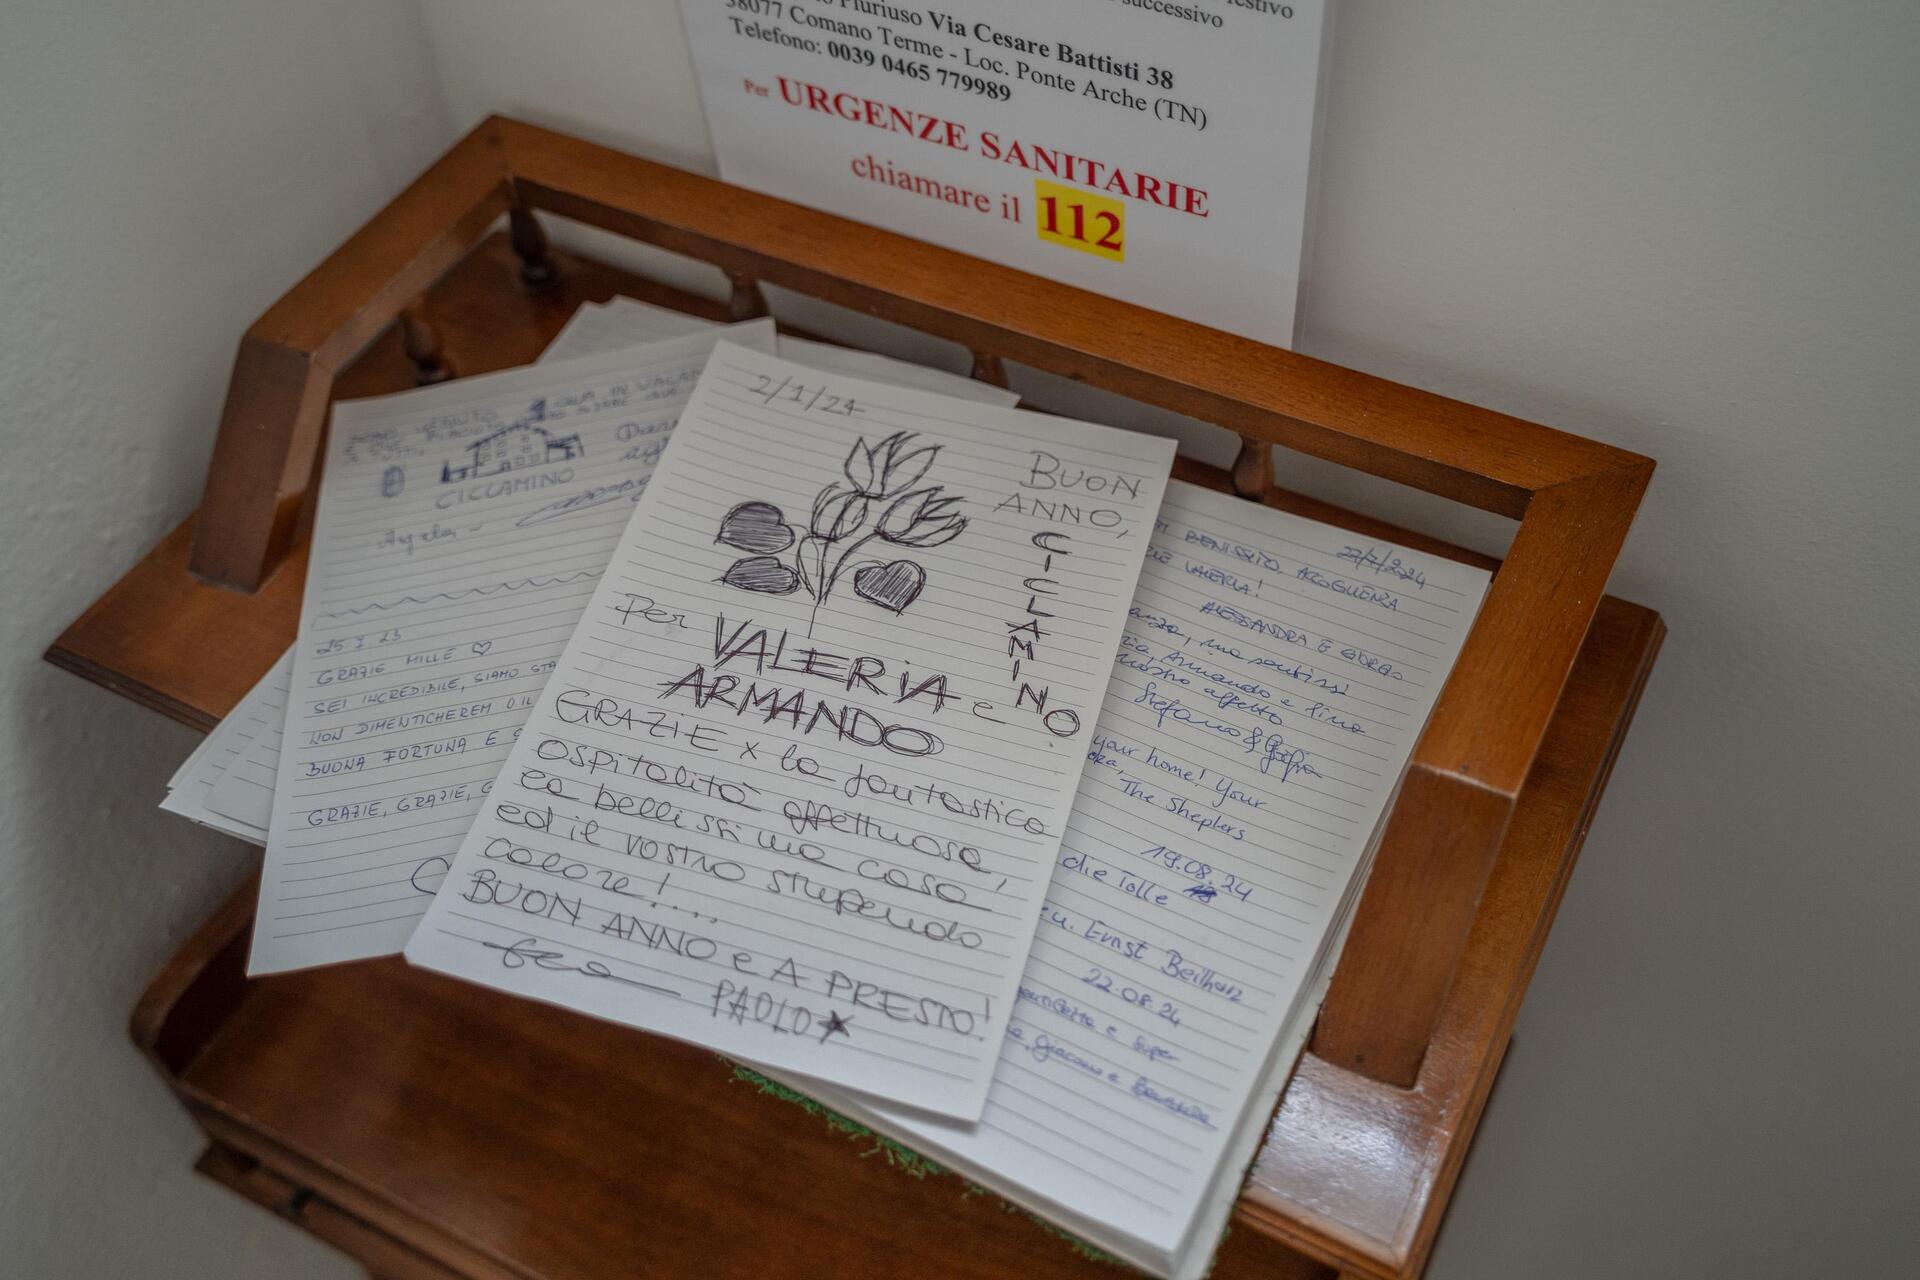 festivo
successivo
Pluriuso Via Cesare Battisti 38
38077 Comano Terme - Loc. Ponte Arche (TN)
Telefono: 0039 0465 779989
Per URGENZE SANITARIE
chiamare il 112
QUA IN VACAN
CICLAMINO
Angela
25.7.23
GRAZIE MILLE ♡
SEI INCREDIBILE, SIAMO STA
NON DIMENTICHEREM O IL
BUONA FORTUNA E
GRAZIE, GRAZIE, G
2/1/24
BUON
ANNO,
CICLAMINO
Per VALERIA e
ARMANDO
GRAZIE x la fantastica
ospitalità affettuosa,
la bellissima casa
ed il vostro stupendo
calore!...
BUON ANNO e A PRESTO!
PAOLO
27/7/2024
BENISSIMO, ACCOGLIENZA
VALERIA!
ALESSANDRA E
Armando e
nostro affetto
Stefano &
your home! Your
The Sheplers
19.08.24
die Tolle
Ernst Beilharz
22.08.24
e super
Giacomo e